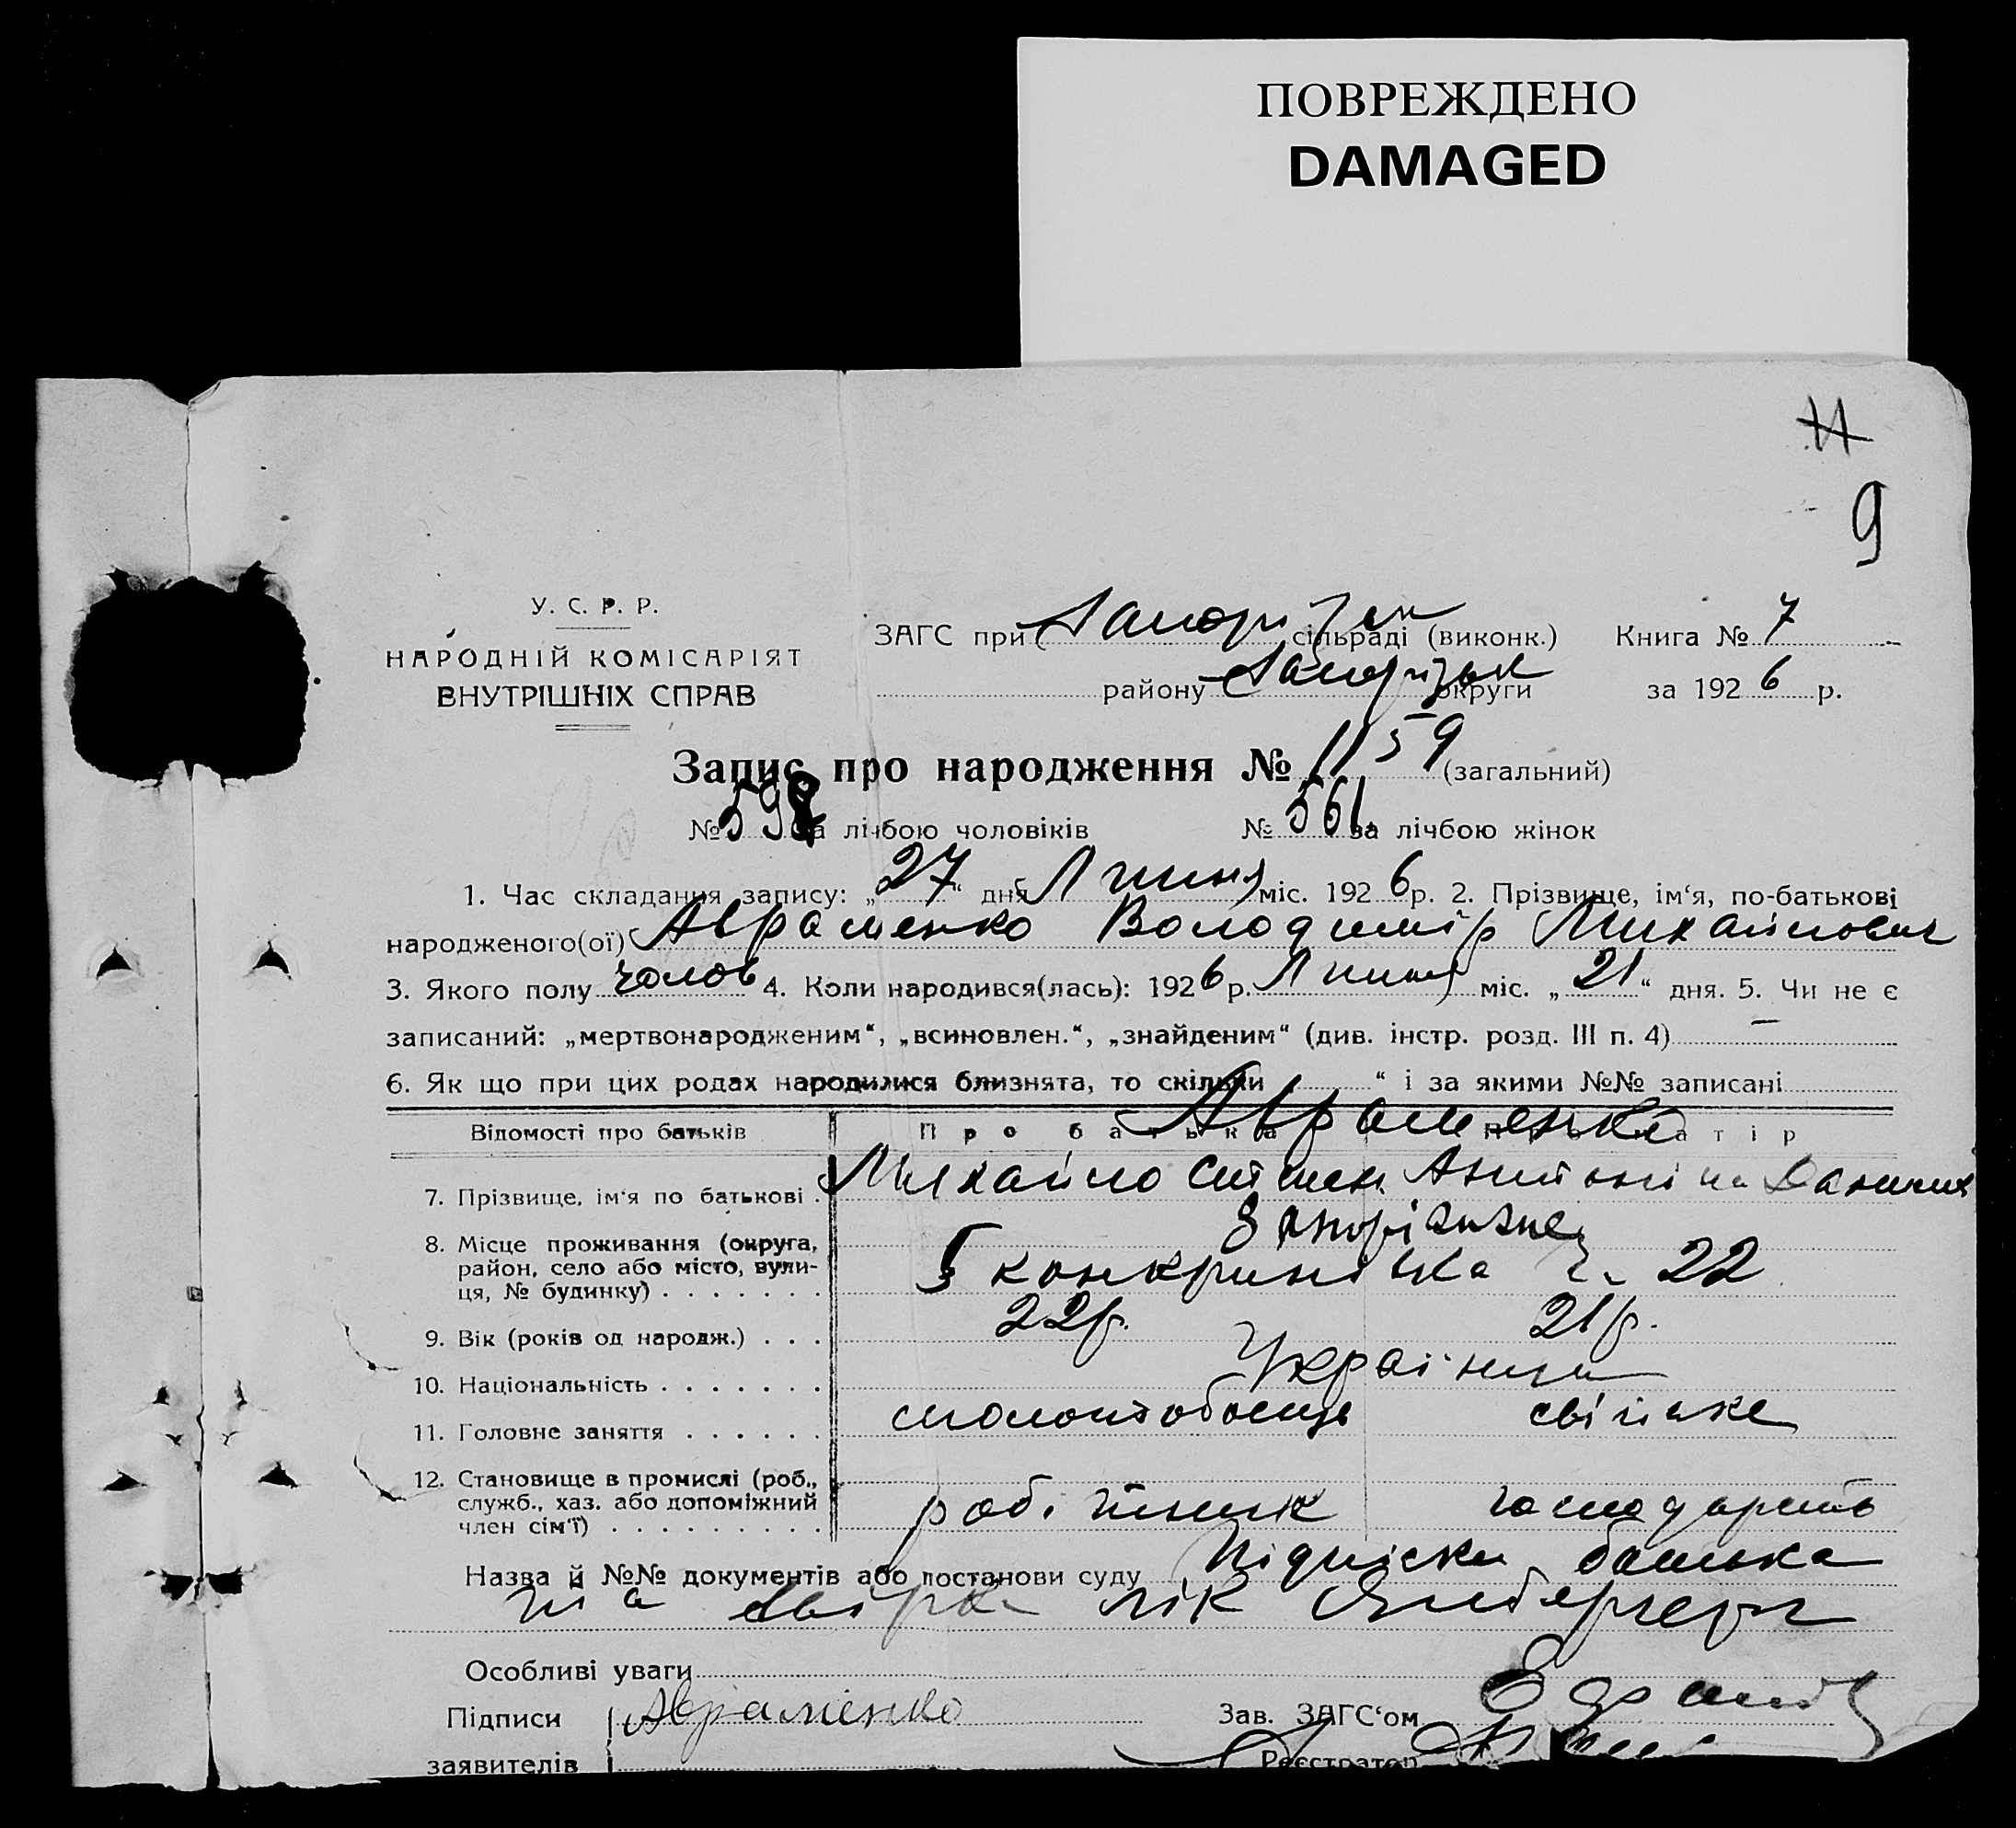 ПОВРЕЖДЕНО
DAMAGED
11
9
У. С. Р. Р.
НАРОДНІЙ КОМІСАРІЯТ
ВНУТРІШНІХ СПРАВ
ЗАГС при Запорізьк сільраді (виконк.) Книга № 7
району Запорізьк округи за 1926 р.
Запис про народження № 1159 (загальний)
№ 598 за лічбою чоловіків № 561 за лічбою жінок
1. Час складання запису: „27“ дня Липня міс. 1926 р. 2. Прізвище, ім‘я, по-батькові
народженого(ої) Авраменко Володимір Михайлович
3. Якого полу чолов 4. Коли народився(лась): 1926 р. Липня міс. „21“ дня. 5. Чи не є
записаний: „мертвонародженим“, „всиновлен.“, „знайденим“ (див. інстр. розд. III п. 4) —
6. Як що при цих родах народилися близнята, то скільки “ і за якими №№ записані
Авраменки
Відомості про батьків Про батька Про матір
7. Прізвище, ім‘я по батькові . Михайло Антоніна
8. Місце проживання (округа,
район, село або місто, вули-
ця, № будинку) . . . . . . . 22
9. Вік (років од народж.) . . . 22р. 21р.
10. Національність . . . . . . . Українці
11. Головне заняття . . . . . . молотобоєць
12. Становище в промислі (роб.,
служб., хаз. або допоміжний
член сім‘ї) . . . . . . . . . робітник
Назва й №№ документів або постанови суду Підписка батька
та лік
Особливі уваги
Підписи Авраменко Зав. ЗАГС‘ом
заявителів Реєстратор